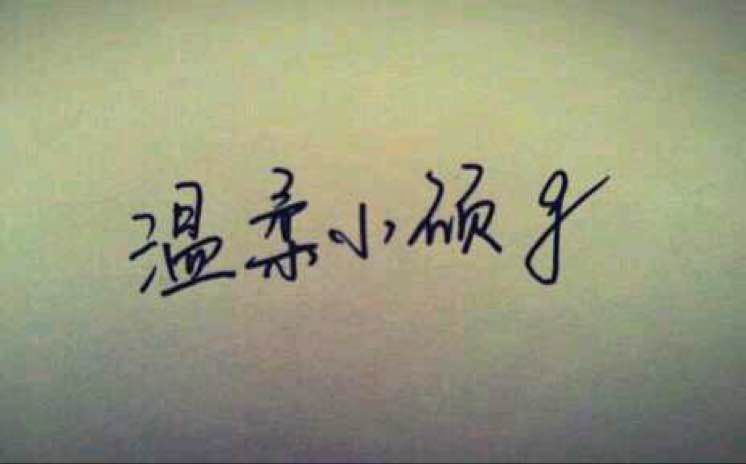 温柔小硕g